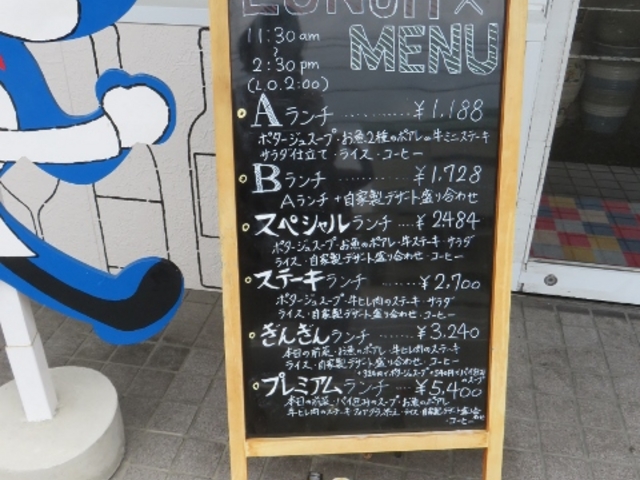 LUNCH
MENU
11:30am
~
2:30pm
(L.O.2:00)
Aランチ ........ ¥1,188
ポタージュスープ・お魚2種のポアレor牛ミニステーキ
サラダ仕立て・ライス・コーヒー
Bランチ ........ ¥1,728
Aランチ+自家製デザート盛り合わせ
スペシャルランチ ... ¥2484
ポタージュスープ・お魚のポアレ・牛ステーキ・サラダ
ライス・自家製デザート盛り合わせ・コーヒー
ステーキランチ ..... ¥2,700
ポタージュスープ・牛ヒレ肉のステーキ・サラダ
ライス・自家製デザート盛り合わせ・コーヒー
ぎんぎんランチ .... ¥3,240
本日の前菜・お魚のポアレ・牛ヒレ肉のステーキ
ライス・自家製デザート盛り合わせ・コーヒー
プレミアムランチ .... ¥5,400
本日の前菜・パイ包みのスープ・お魚のポアレ
牛ヒレ肉のステーキ フォアグラ添え・ライス・自家製デザート盛り合わせ
・コーヒー